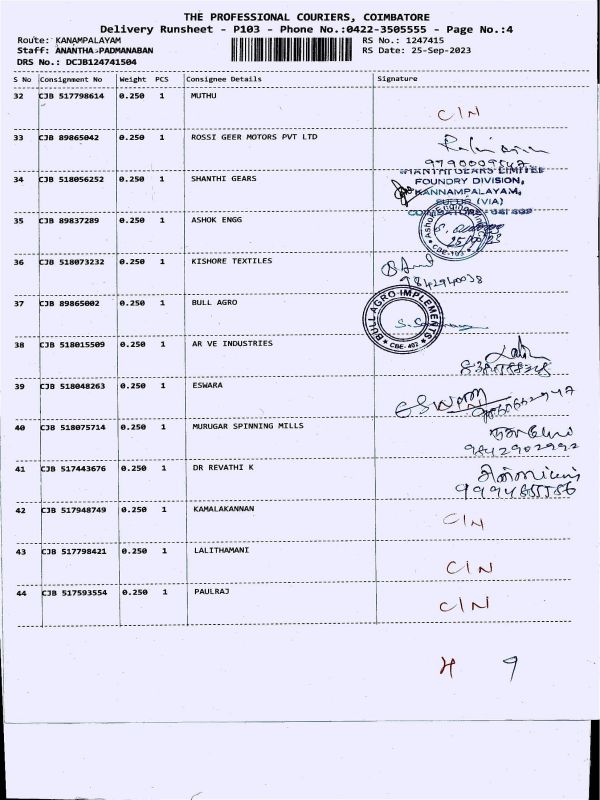 THE PROFESSIONAL COURIERS, COIMBATORE
Delivery Runsheet - P103 - Phone No.:0422-3505555 - Page No.:4
Route: KANAMPALAYAM RS No.: 1247415
Staff: ANANTHA PADMANABAN RS Date: 25-Sep-2023
DRS No.: DCJB124741504
S No Consignment No Weight PCS Consignee Details Signature
32 CJB 517798614 0.250 1 MUTHU C/N
33 CJB 89865042 0.250 1 ROSSI GEER MOTORS PVT LTD
34 CJB 518056252 0.250 1 SHANTHI GEARS
SHANTHI GEARS LIMITED
FOUNDRY DIVISION,
KANNAMPALAYAM,
SULUR (VIA)
35 CJB 89837289 0.250 1 ASHOK ENGG
25/09/23
36 CJB 518073232 0.250 1 KISHORE TEXTILES
9842940038
37 CJB 89865002 0.250 1 BULL AGRO
BULL AGRO IMPLEMENTS
CBE - 402
38 CJB 518015509 0.250 1 AR VE INDUSTRIES
39 CJB 518048263 0.250 1 ESWARA
40 CJB 518075714 0.250 1 MURUGAR SPINNING MILLS
9842902992
41 CJB 517443676 0.250 1 DR REVATHI K
42 CJB 517948749 0.250 1 KAMALAKANNAN C/N
43 CJB 517798421 0.250 1 LALITHAMANI C/N
44 CJB 517593554 0.250 1 PAULRAJ C/N
9